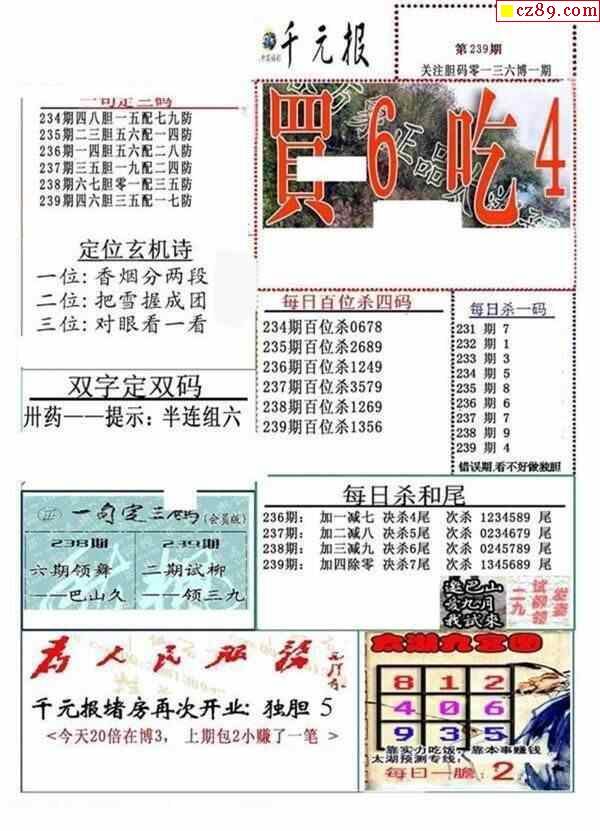 cz89.com
千元报
第239期
关注胆码零一三六博一期
一句定三码
234期四八胆一五配七九防
235期二三胆五六配一四防
236期一四胆五六配二八防
237期三五胆一九配二四防
238期六七胆零一配三五防
239期四六胆三五配一七防
買6吃4
定位玄机诗
一位: 香烟分两段
二位: 把雪握成团
三位: 对眼看一看
每日百位杀四码
234期百位杀0678
235期百位杀2689
236期百位杀1249
237期百位杀3579
238期百位杀1269
239期百位杀1356
每日杀一码
231 期 7
232 期 1
233 期 3
234 期 5
235 期 8
236 期 6
237 期 7
238 期 9
239 期 4
错误期,看不好做独胆
双字定双码
卅药——提示: 半连组六
一句定三码(会员版)
238期
六期领舞
——巴山久
239期
二期试柳
——领三九
每日杀和尾
236期: 加一减七 决杀4尾 次杀 1234589 尾
237期: 加二减八 决杀5尾 次杀 0234679 尾
238期: 加三减九 决杀6尾 次杀 0245789 尾
239期: 加四除零 决杀7尾 次杀 1345689 尾
为人民服务
千元报堵房再次开业: 独胆 5
<今天20倍在博3, 上期包2小赚了一笔 >
太湖九宫图
8 1 2
4 0 6
9 3 5
靠实力吃饭 靠本事赚钱
太湖预测专线:
每日一胆: 2